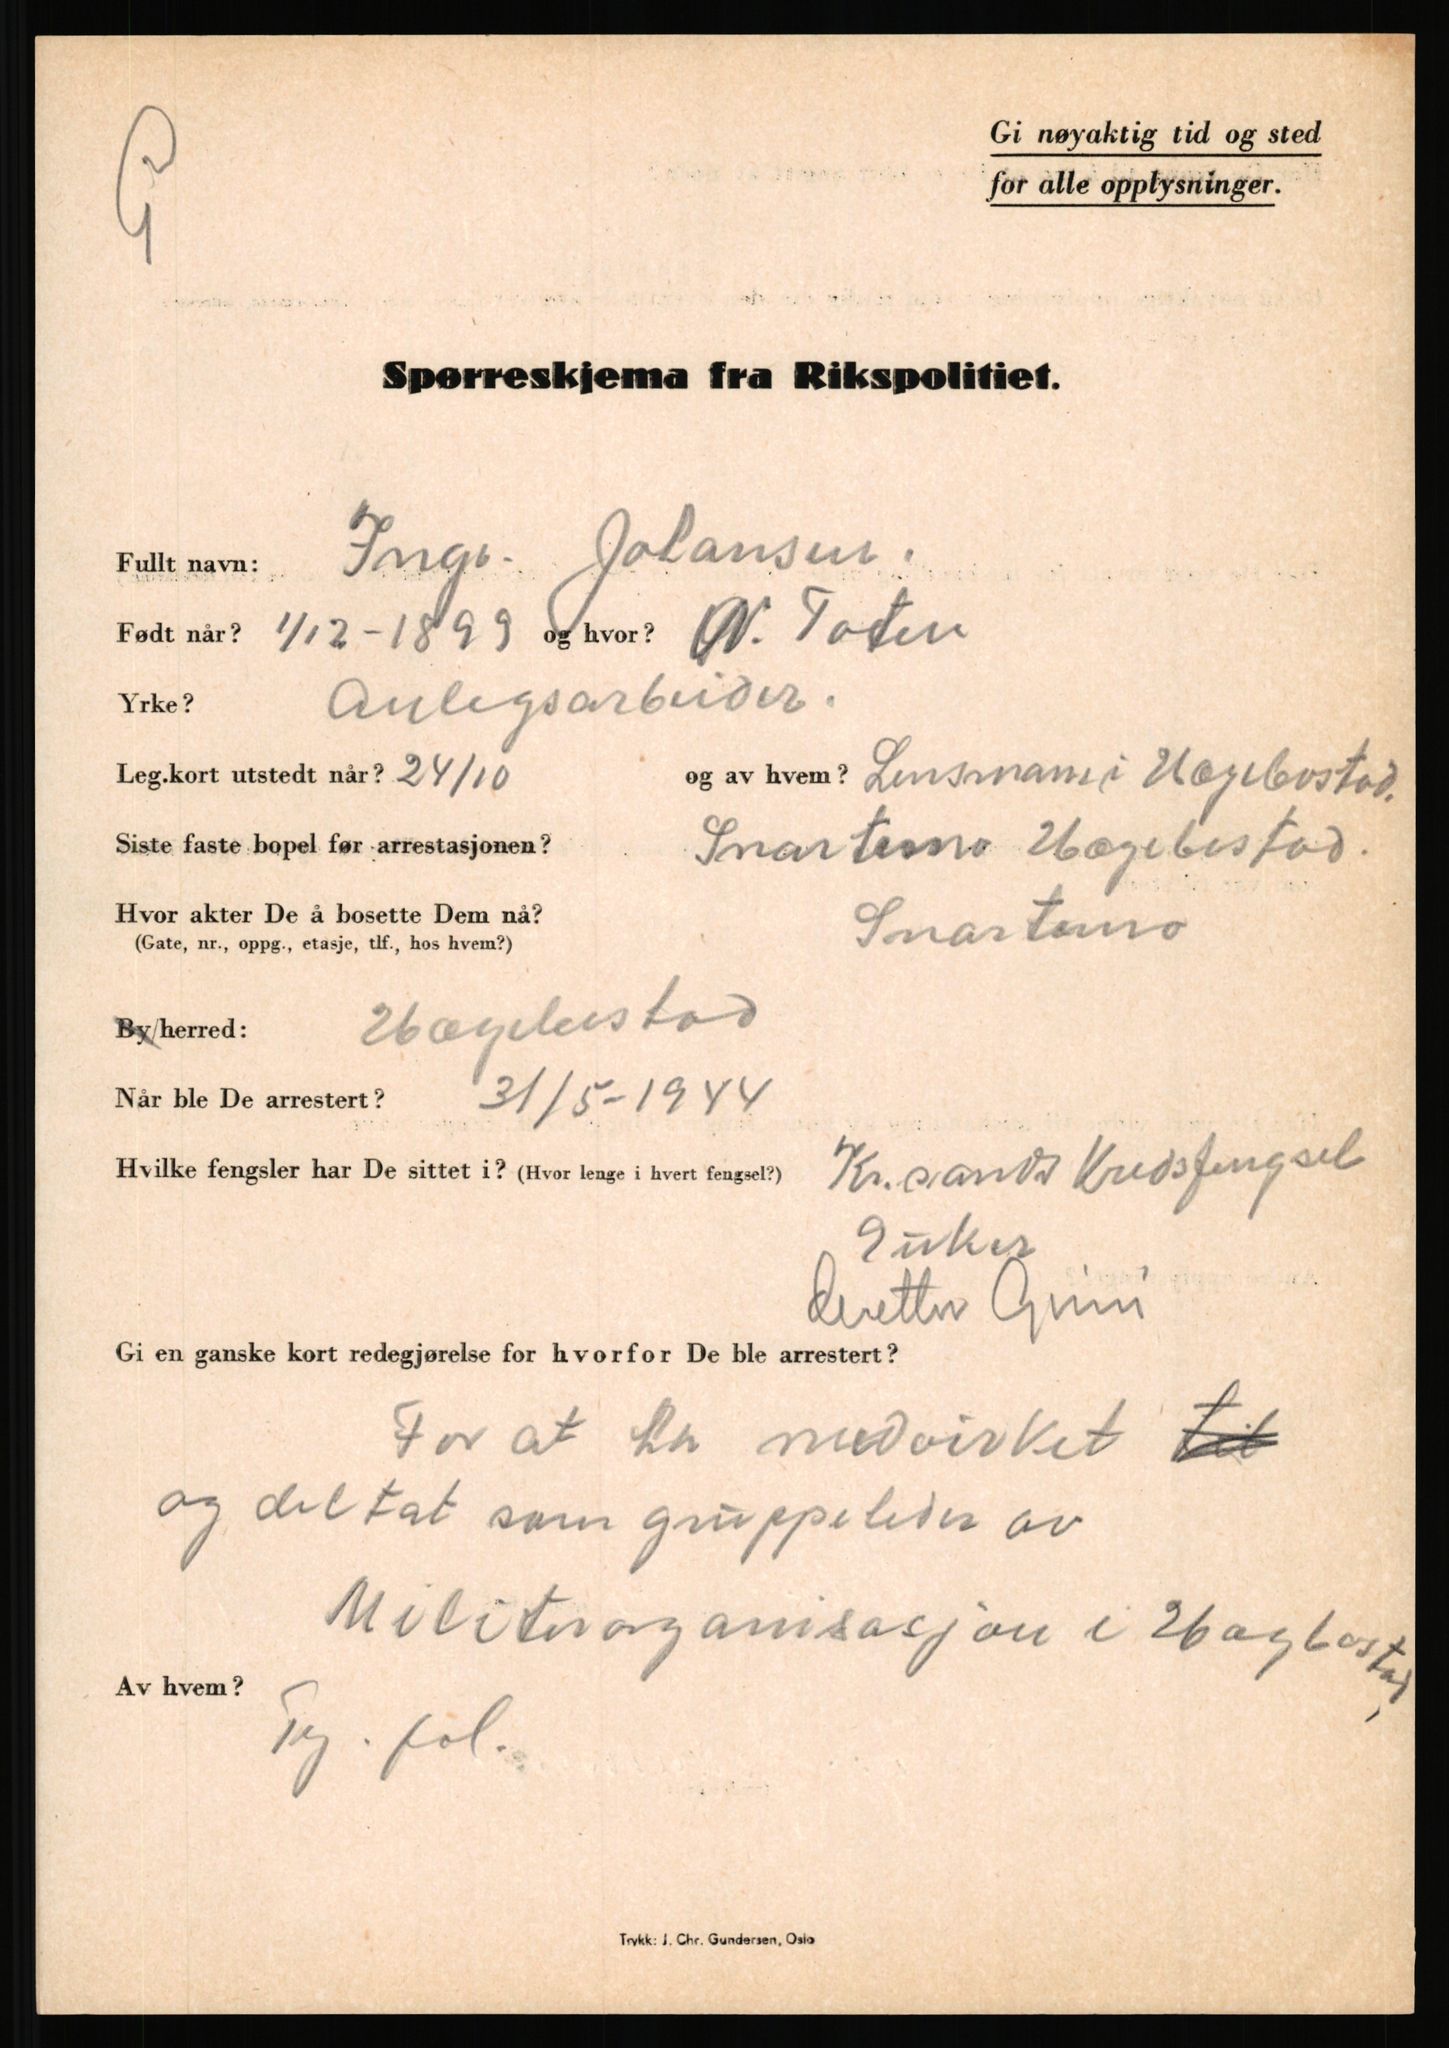 Gi nøyaktig tid og sted
for alle opplysninger.
Spørreskjema fra Rikspolitiet.
Fullt navn: Inge. Johansen.
Født når? 1/12-1899 og hvor? N. Toten
Yrke? Anlegsarbeider.
Leg.kort utstedt når? 24/10 og av hvem? Lensmann i Hægebostad.
Siste faste bopel før arrestasjonen? Snartemo Hægebostad.
Hvor akter De å bosette Dem nå? Snartemo
(Gate, nr., oppg., etasje, tlf., hos hvem?)
By/herred: Hægebostad
Når ble De arrestert? 31/5-1944
Hvilke fengsler har De sittet i? (Hvor lenge i hvert fengsel?) Kr.sands Kredsfengsel
9 uker
deretter Grini
Gi en ganske kort redegjørelse for hvorfor De ble arrestert?
For at ha medvirket til
og deltat som gruppeleder av
Militærorganisasjon i Hægbostad,
Av hvem?
Ty. pol.
Trykk: J. Chr. Gundersen, Oslo